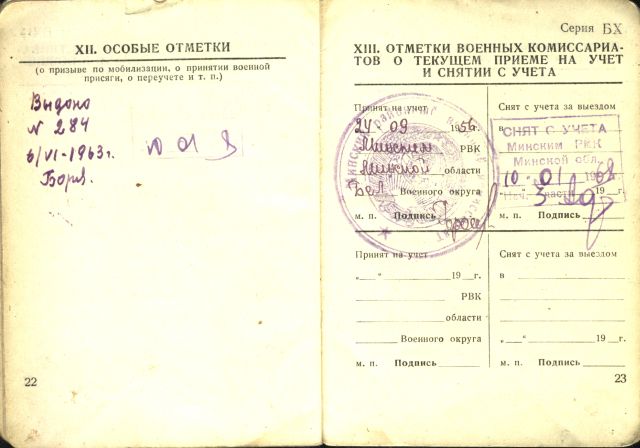 XII. ОСОБЫЕ ОТМЕТКИ
(о призыве по мобилизации, о принятии военной
присяги, о переучете и т. п.)
Выдано
N 284
6/VI-1963 г.
22
Серия БХ
XIII. ОТМЕТКИ ВОЕННЫХ КОМИССАРИА-
ТОВ О ТЕКУЩЕМ ПРИЕМЕ НА УЧЕТ
И СНЯТИИ С УЧЕТА
Принят на учет
24 09 1956 г.
Минским РВК
Минской области
Бел Военного округа
м. п. Подпись
Снят с учета за выездом
в
СНЯТ С УЧЕТА
Минским РВК
Минской обл.
10 - 01 1968
19 г.
м. п. Подпись
Принят на учет
„ “ 19 г.
РВК
области
Военного округа
м. п. Подпись
Снят с учета за выездом
в
„ “ 19 г.
м. п. Подпись
23